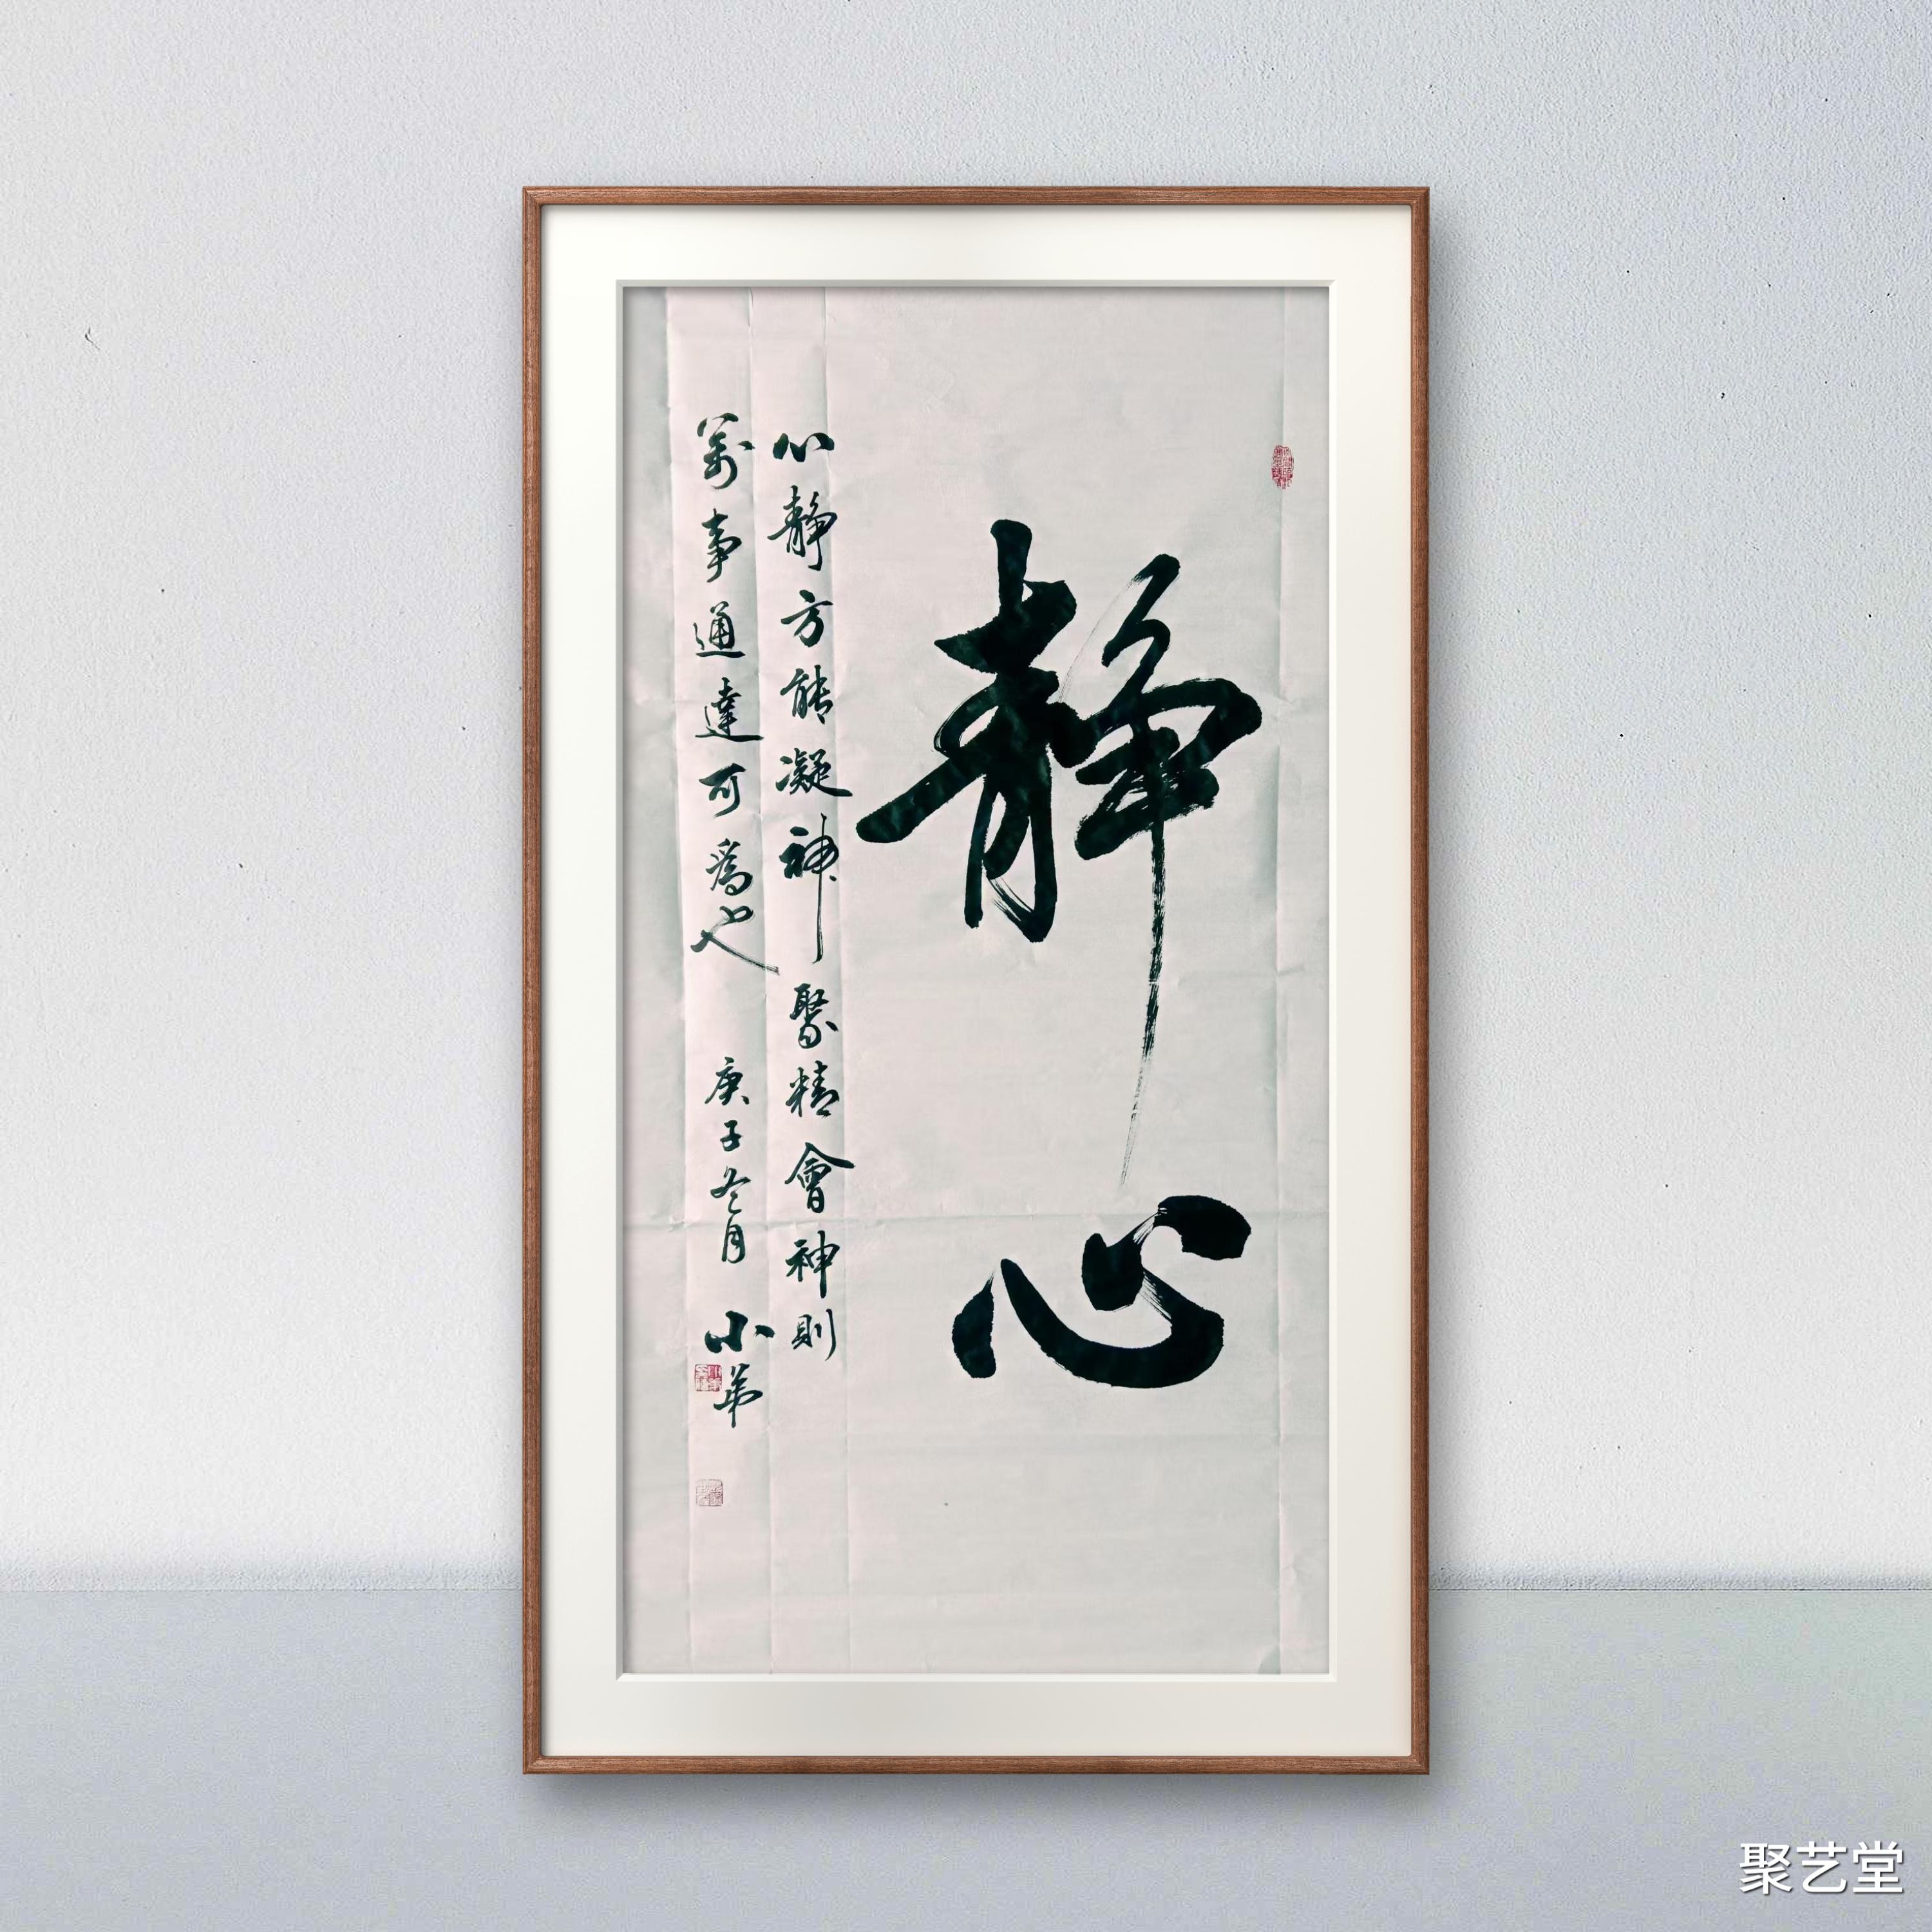 静心
心静方能凝神聚精會神則
萬事通達可為也
庚子冬月
小弟
聚艺堂